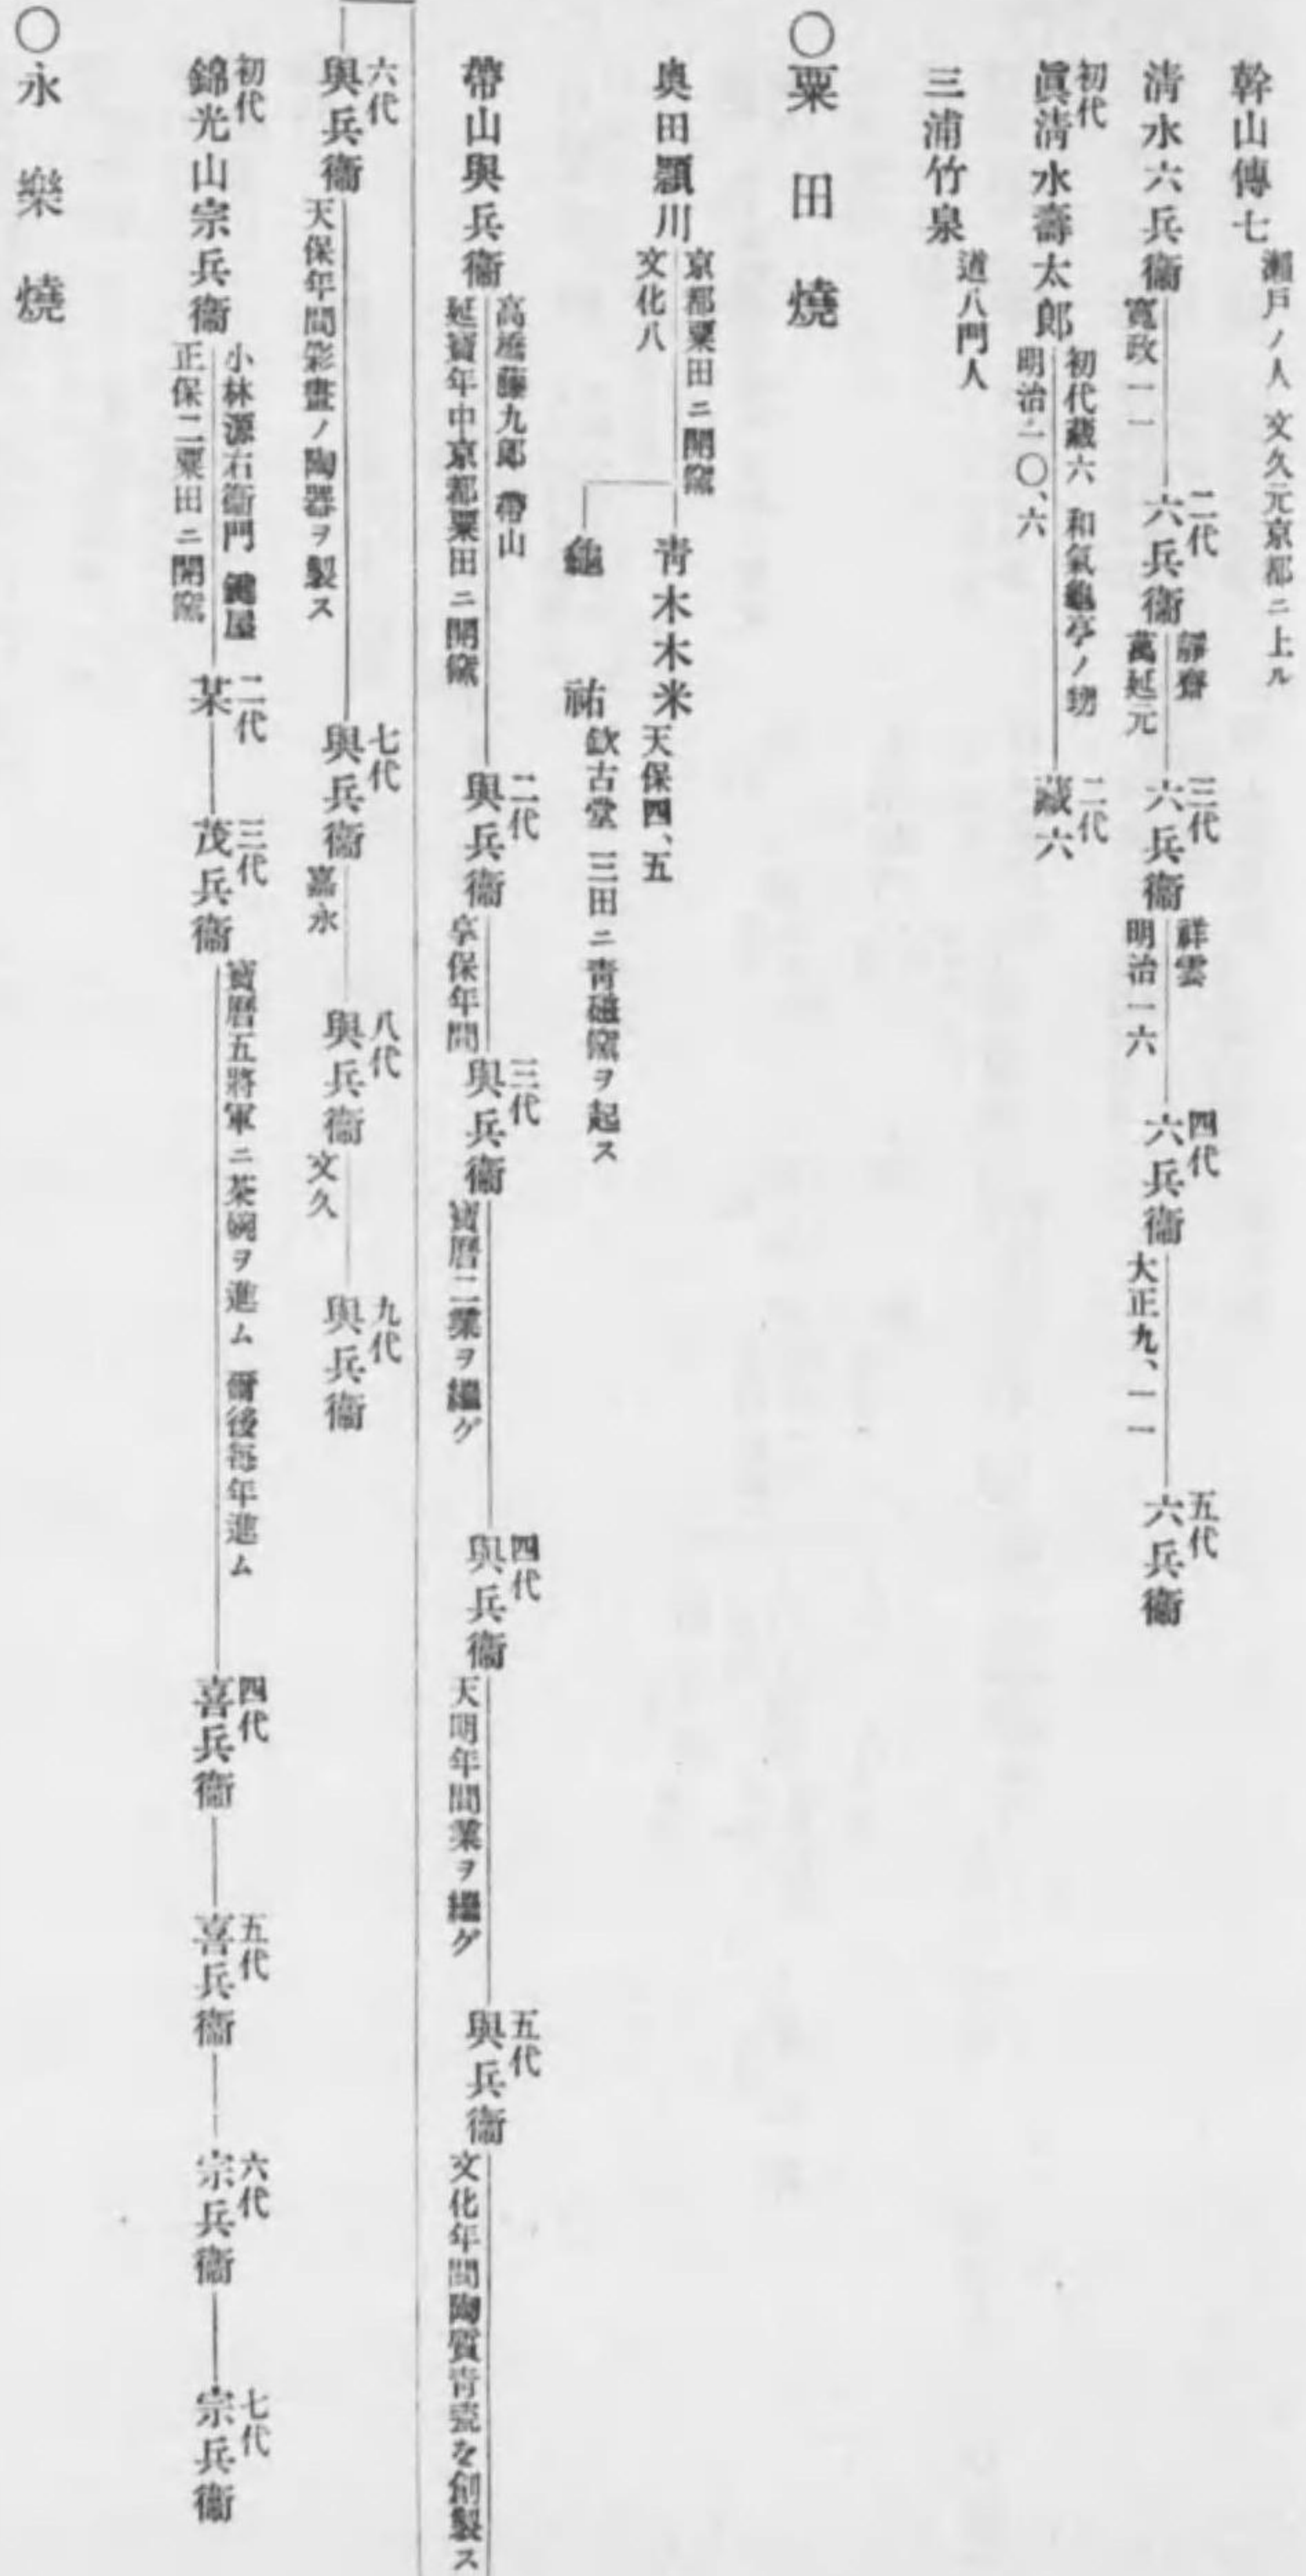 幹山傳七 瀬戸ノ人 文久元京都ニ上ル
清水六兵衞 寬政一一 二代 六兵衞 靜齋 萬延元 三代 六兵衞 祥雲 明治一六 四代 六兵衞 大正九、一一 五代 六兵衞
初代 眞清水壽太郎 初代藏六 和氣龜亭ノ甥 明治一〇、六 二代 藏六
三浦竹泉 道八門人
〇粟田燒
奥田頴川 京都粟田ニ開窯 文化八 靑木木米 天保四、五
龜祐 欽古堂 三田ニ靑磁窯ヲ起ス
帶山與兵衞 高橋藤九郎 帶山 延寶年中京都粟田ニ開窯 二代 與兵衞 享保年間 三代 與兵衞 寶曆二業ヲ繼グ 四代 與兵衞 天明年間業ヲ繼グ 五代 與兵衞 文化年間陶質靑瓷を創製ス
六代 與兵衞 天保年間彩畫ノ陶器ヲ製ス 七代 與兵衞 嘉永 八代 與兵衞 文久 九代 與兵衞
初代 錦光山宗兵衞 小林源右衞門 鍵屋 正保二粟田ニ開窯 二代 某 三代 茂兵衞 寶曆五將軍ニ茶碗ヲ進ム 爾後每年進ム 四代 喜兵衞 五代 喜兵衞 六代 宗兵衞 七代 宗兵衞
〇永樂燒